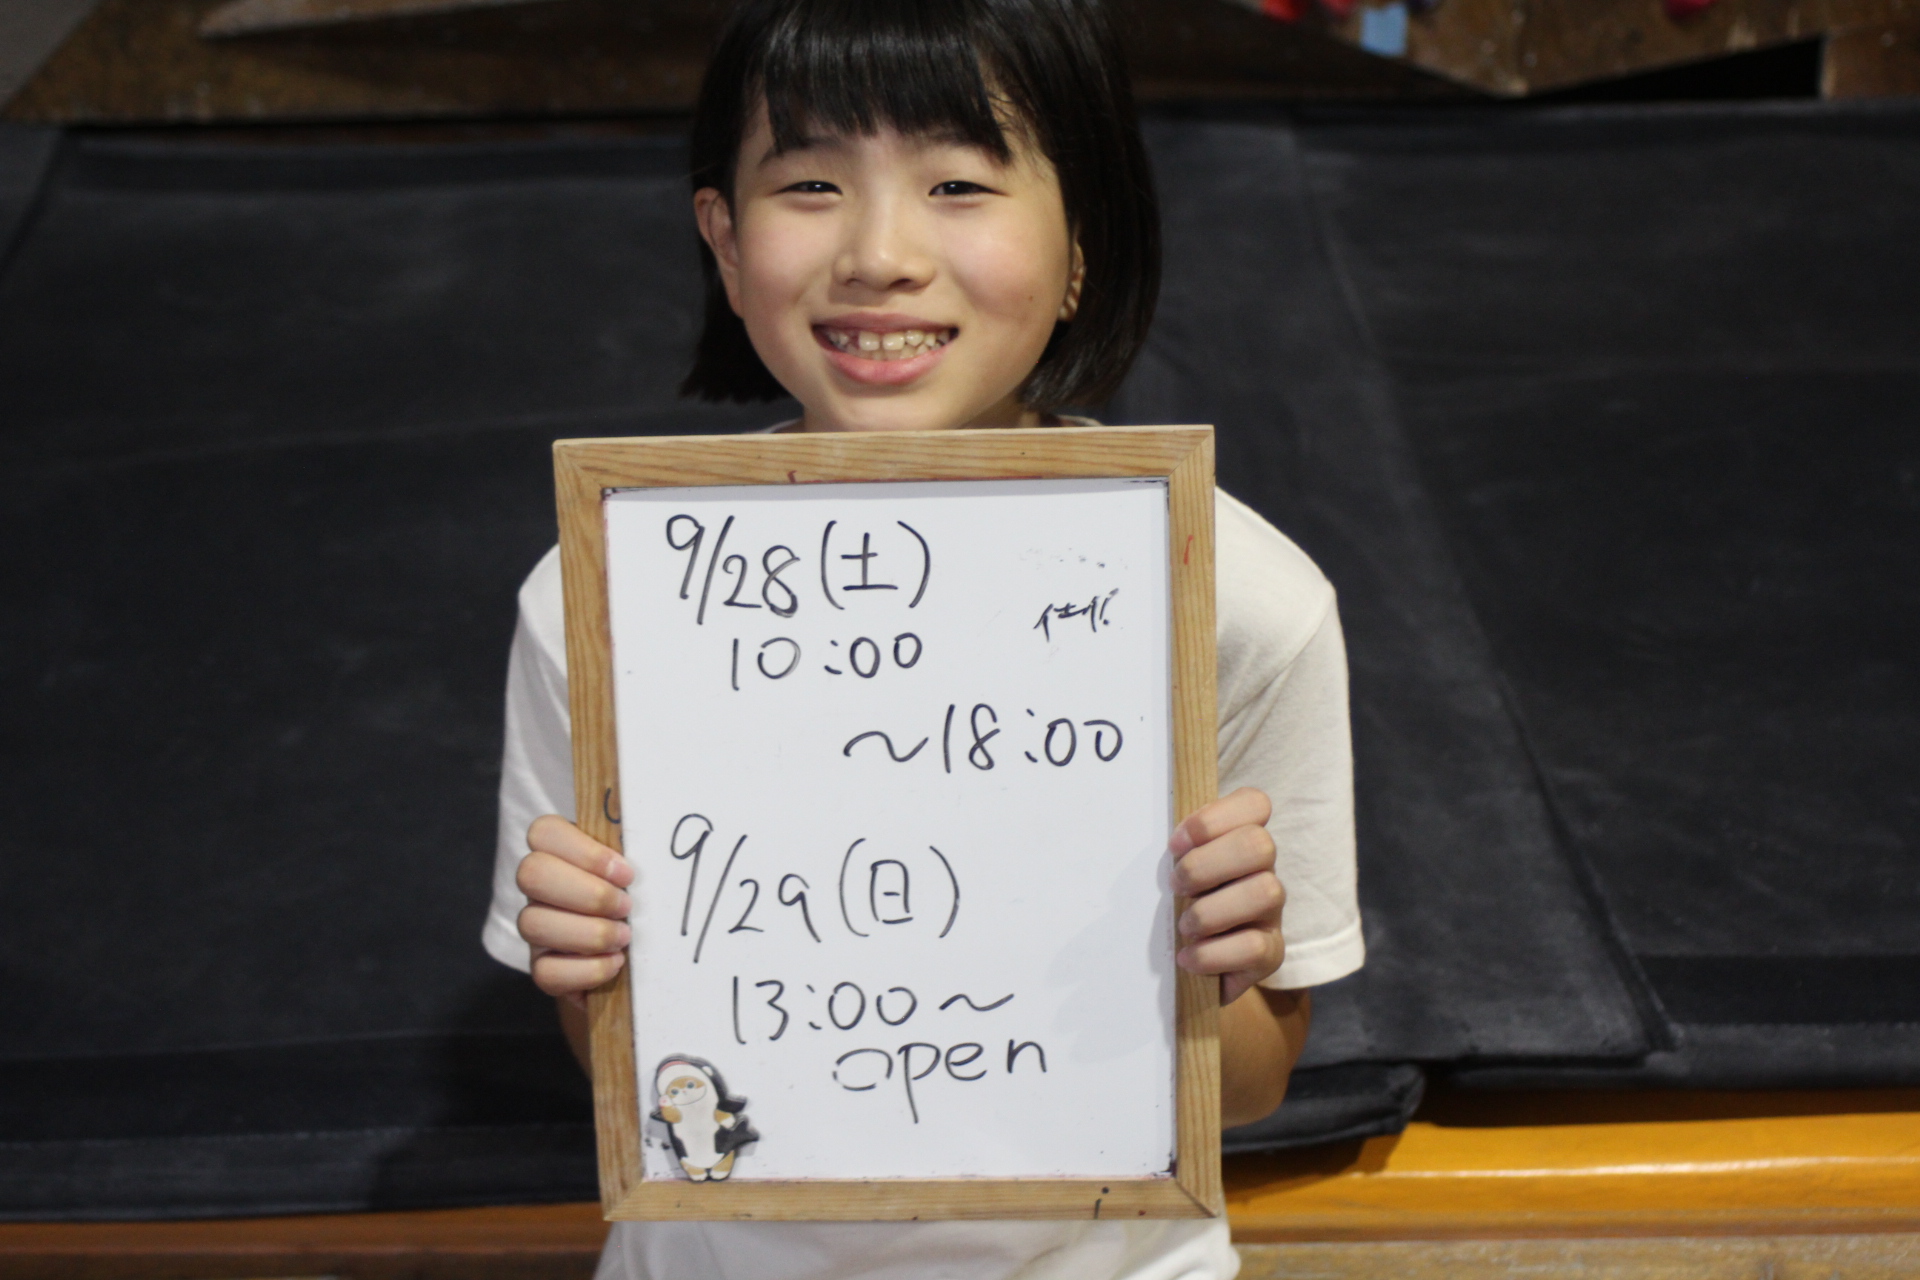 9/28(土)
10:00
～18:00
9/29(日)
13:00～
open